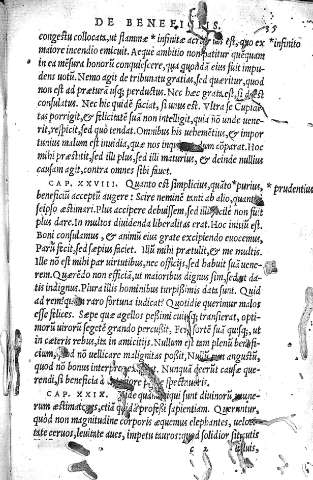 DE BENEFICIIS. 35
congestu collocata, ut flammæ * infinitæ acrior uis est, quo ex * infinito
maiore incendio emicuit. Aeque ambitio non patitur quenquam
in ea mēsura honorū conquiescere, quæ quondā eius fuit impu-
dens uotū. Nemo agit de tribunatu gratias, sed quæritur, quod
non est ad præturā usq; perductus. Nec hæc grata est, si deest
consulatus. Nec hic quidē satiat, si unus est. Vltra se Cupidi-
tas porrigit, & felicitatē suā non intelligit, quia nō unde uene-
rit, respicit, sed quò tendat. Omnibus his uehemētius, & impor
tunius malum est inuidia, quæ nos inquietat dum cōparat. Hoc
mihi præstitit, sed illi plus, sed illi maturius, & deinde nullius
causam agit, contra omnes sibi fauet.
CAP. XXVIII. Quanto est simplicius, quāto * purius, * prudentius
beneficiū acceptū augere? Scire neminē tanti ab alio, quanti à
seipso æstimari. Plus accipere debuissem, sed illi facile non fuit
plus dare. In multos diuidenda liberalitas erat. Hoc initiū est.
Boni consulamus, & animū eius grate excipiendo euocemus.
Parū fecit, sed sæpius faciet. Illū mihi prætulit, & me multis.
Ille nō est mihi par uirtutibus, nec officijs, sed habuit suā uene-
rem. Quærēdo non efficiā, ut maioribus dignus sim, sed ut da-
tis indignus. Plura illis hominibus turpissimis data sunt. Quid
ad rem? quàm raro fortuna iudicat? Quotidie querimur malos
esse felices. Sæpe quæ agellos pessimi cuiusq; transierat, opti-
morū uirorū segetē grando percussit. Fert sortē suā quisq; ut
in cæteris rebus, ita in amicitijs. Nullum est tam plenū benefi-
cium, quod nō uellicare malignitas possit, Nullū tam angustū,
quod nō bonus interpres extendat. Nunquā deerūt causæ que-
rendi, si beneficia à deteriore parte spectaueris.
CAP. XXIX. Vide quàm iniqui sunt diuinorū mune-
rum æstimatores, etiā quidā professi sapientiam. Queruntur,
quòd non magnitudine corporis æquemus elephantes, uelo-
tate ceruos, leuitate aues, impetu tauros: quòd solidior sit cutis